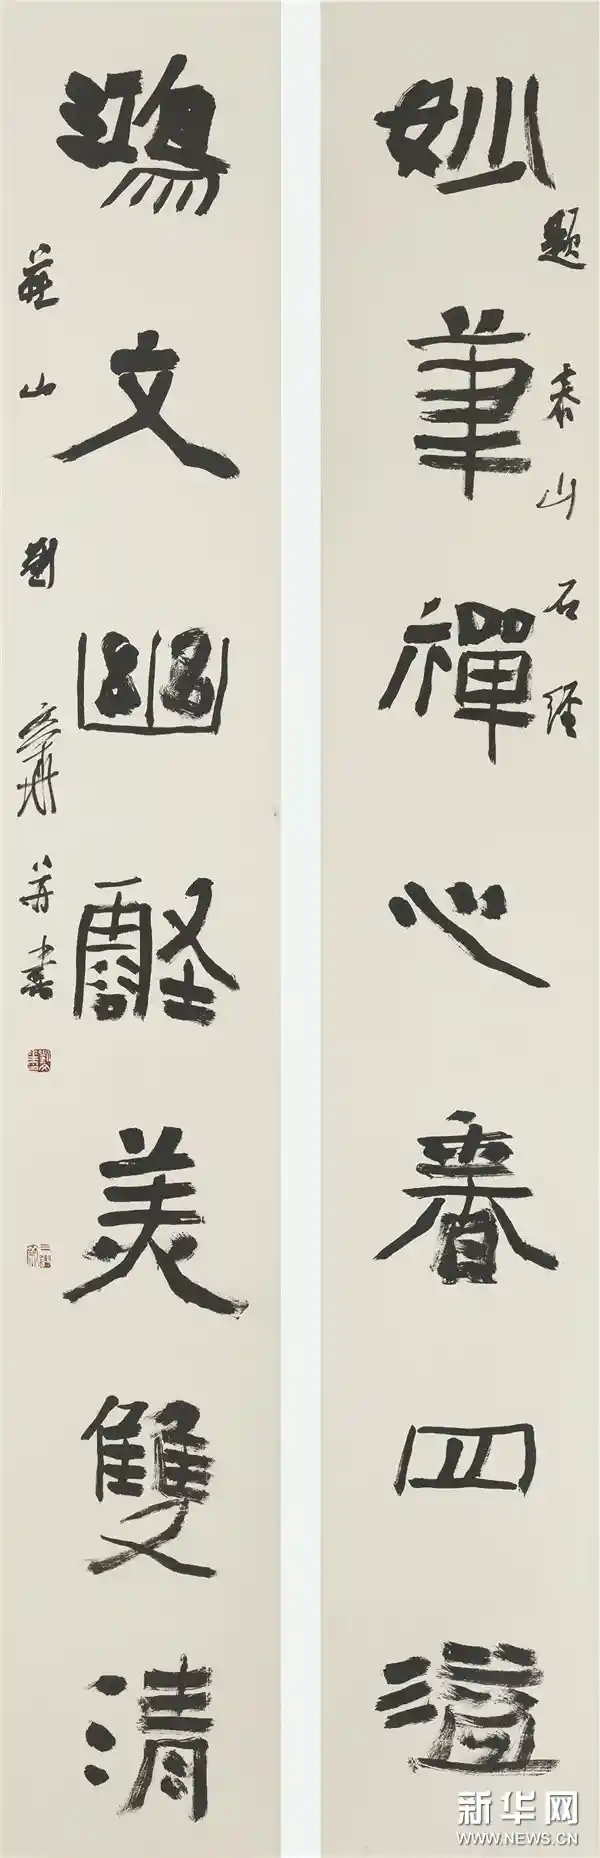 妙筆禪心春四溢
題泰山石經
鴻文幽壑美雙清
燕山劉文華并書
新华网
WWW.NEWS.CN